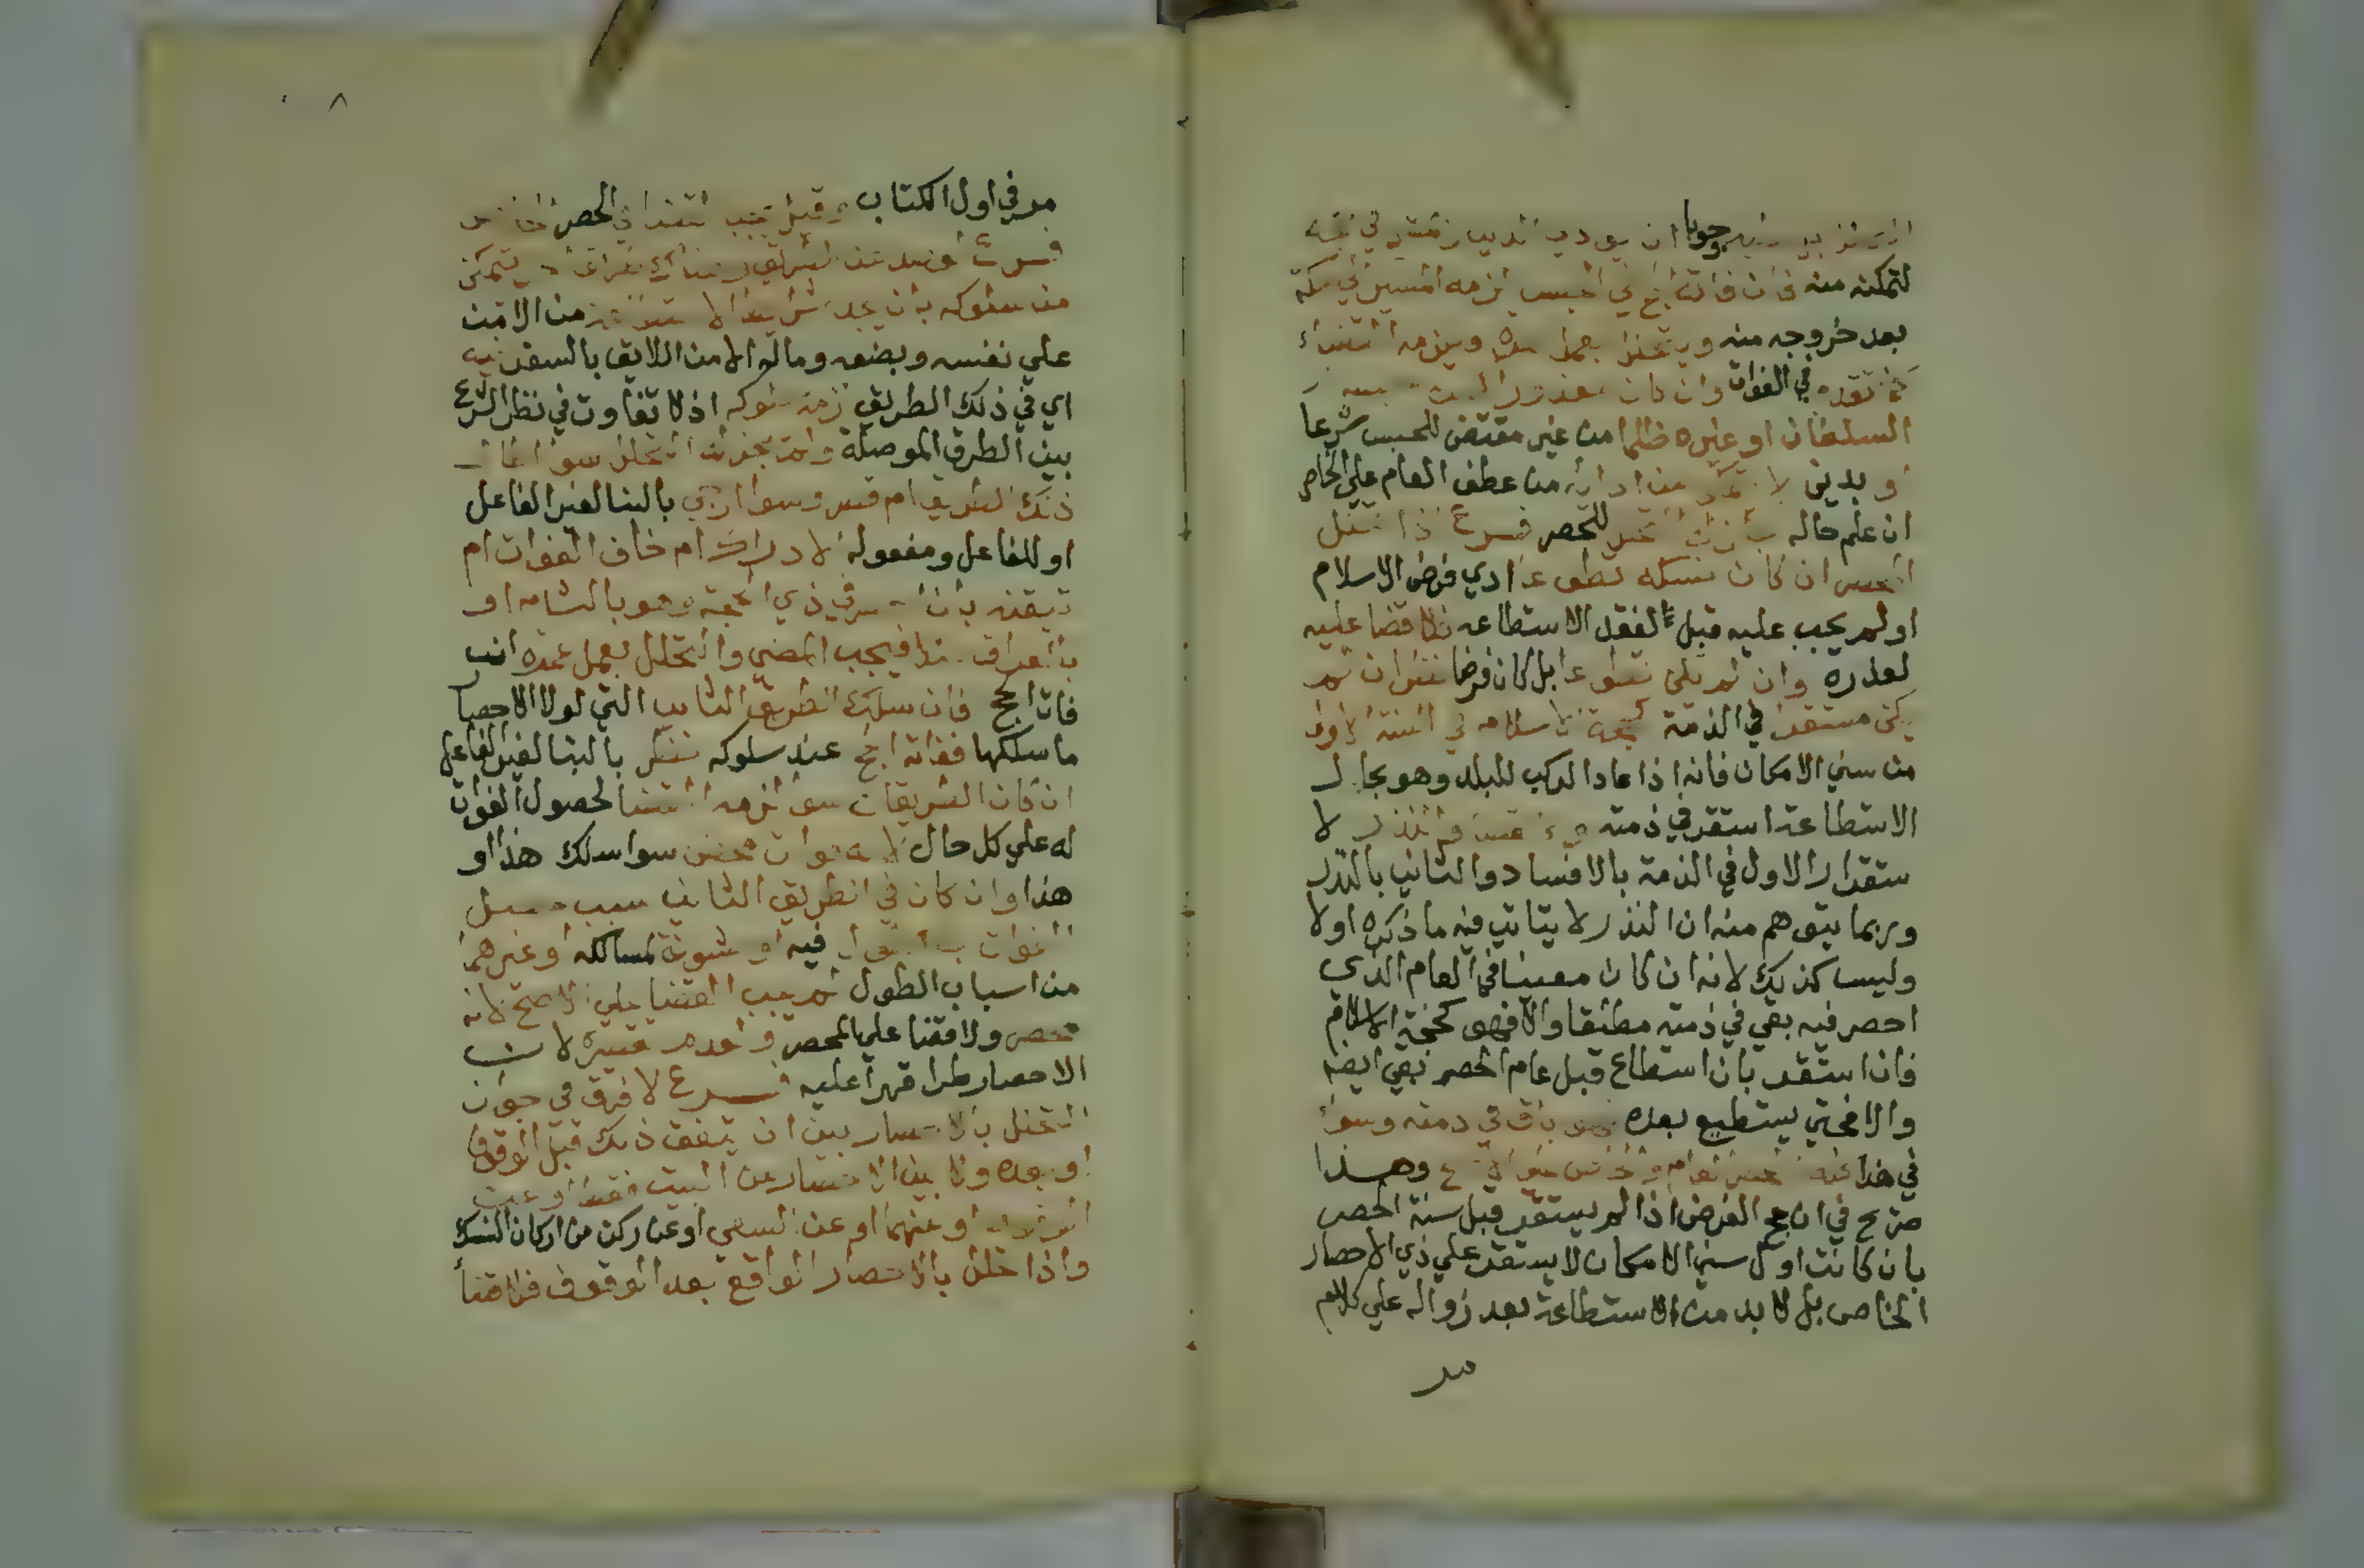 وجوبا ان يودي الدين
لتمكنه منه فان فاته الحج في الحبس لزمه المسير الي مكة
بعد خروجه منه ويتحلل بعمل عمرة ويلزمه القضاء
كما تقدم في الفوات وان كان معذورا
السلطان او غيره ظلما من غير مقتض للحبس شرعا
او بدين لا يتمكن من ادائه من عطف العام علي الخاص
ان علم حاله للحصر فرع اذا تحلل
المحصر ان كان نسكه تطوعا ادي فرض الاسلام
او لم يجب عليه قبل لفقد الاستطاعه فلا قضا عليه
لعذره وان لم يكن تطوعا بل كان فرضا نظر ان لم
يكن مستقرا في الذمة كحجة الاسلام في السنة الاولي
من سني الامكان فانه اذا عاد الركب للبلد وهو بحال
الاستطاعة استقر في ذمته لا
ستقرار الاول في الذمة بالافساد والثاني بالنذر
وربما يتوهم منه ان النذر لا يتاتي فيه ما ذكره اولا
وليس كذلك لانه ان كان معينا في العام الذي
احصر فيه بقي في ذمته مطلقا والا فهو كحجة الاسلام
فان استقر بان استطاع قبل عام الحصر بقي ايضا
والا فحتي يستطيع بعده باق في ذمته وسوا
في هذا الحصر العام والخاص علي الاصح وهذا
صريح في ان حج الفرض اذا لم يستقر قبل سنة الحصر
بان كانت اول سني الامكان لا يستقر علي ذي الاحصار
الخاص بل لا بد من الاستطاعة بعد زواله علي كلام
مر
٨
مر في اول الكتاب وقيل يجب القضا في الحصر الخاص
فرع يتمكن
من سلوكه بان يجد شرايط الاستطاعة من الامن
علي نفسه وبضعه وماله الامن اللايق بالسفر فيه
اي في ذلك الطريق لزمه سلوكه اذ لا تفاوت في نظر الشرع
بين الطرق الموصلة ولم يجز له التحلل سوا اطال
ذلك الطريق ام قصر وسوا ارجي بالبنا لغير الفاعل
او للفاعل ومفعوله الادراك ام خاف الفوات ام
تيقنه بان احصر في ذي الحجة وهو بالشام او
بالعراق مثلا فيجب المضي والتحلل بعمل عمرة ان
فات الحج فان سلك الطريق الثاني التي لولا الاحصا
ما سلكها ففاته الحج عند سلوكه نظر بالبنا لغير الفاعل
ان كان الطريقان سوا لزمه القضا لحصول الفوات
له علي كل حال لانه فوات محض سوا سلك هذا او
هذا وان كان في الطريق الثاني سبب حصل
الفوات به فيه او خشونة لمسالكه او غيرهما
من اسباب الطول لم يجب القضا علي الاصح لانه
محصر ولا قضا علي المحصر ولعدم تقصيره لان
الاحصار طرا قهرا عليه فرع لا فرق في جواز
التحلل بالاحصار بين ان يتفق ذلك قبل الوقوف
او بعده ولا بين الاحصار عن البيت فقط او عن
الوقوف او عنهما او عن السعي او عن ركن من اركان النسك
واذا تحلل بالاحصار الواقع بعد الوقوف فلا قضا